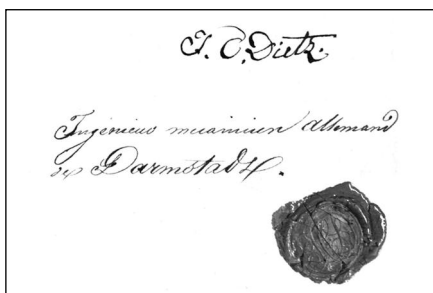 J. C. Dietz.
Ingénieur mécanicien allemand
de Darmstadt.